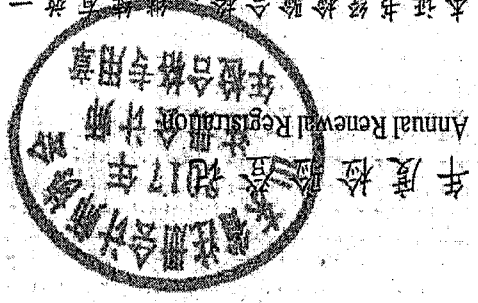 年度检验登记
Annual Renewal Registration
本证书经检验合格，继续有效一
注册会计师协会
2017年
注册会计师
年检合格专用章